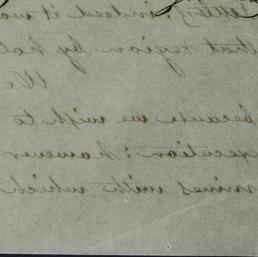 indeed it
that region by
We
because we wish to
execution: however
mines with which